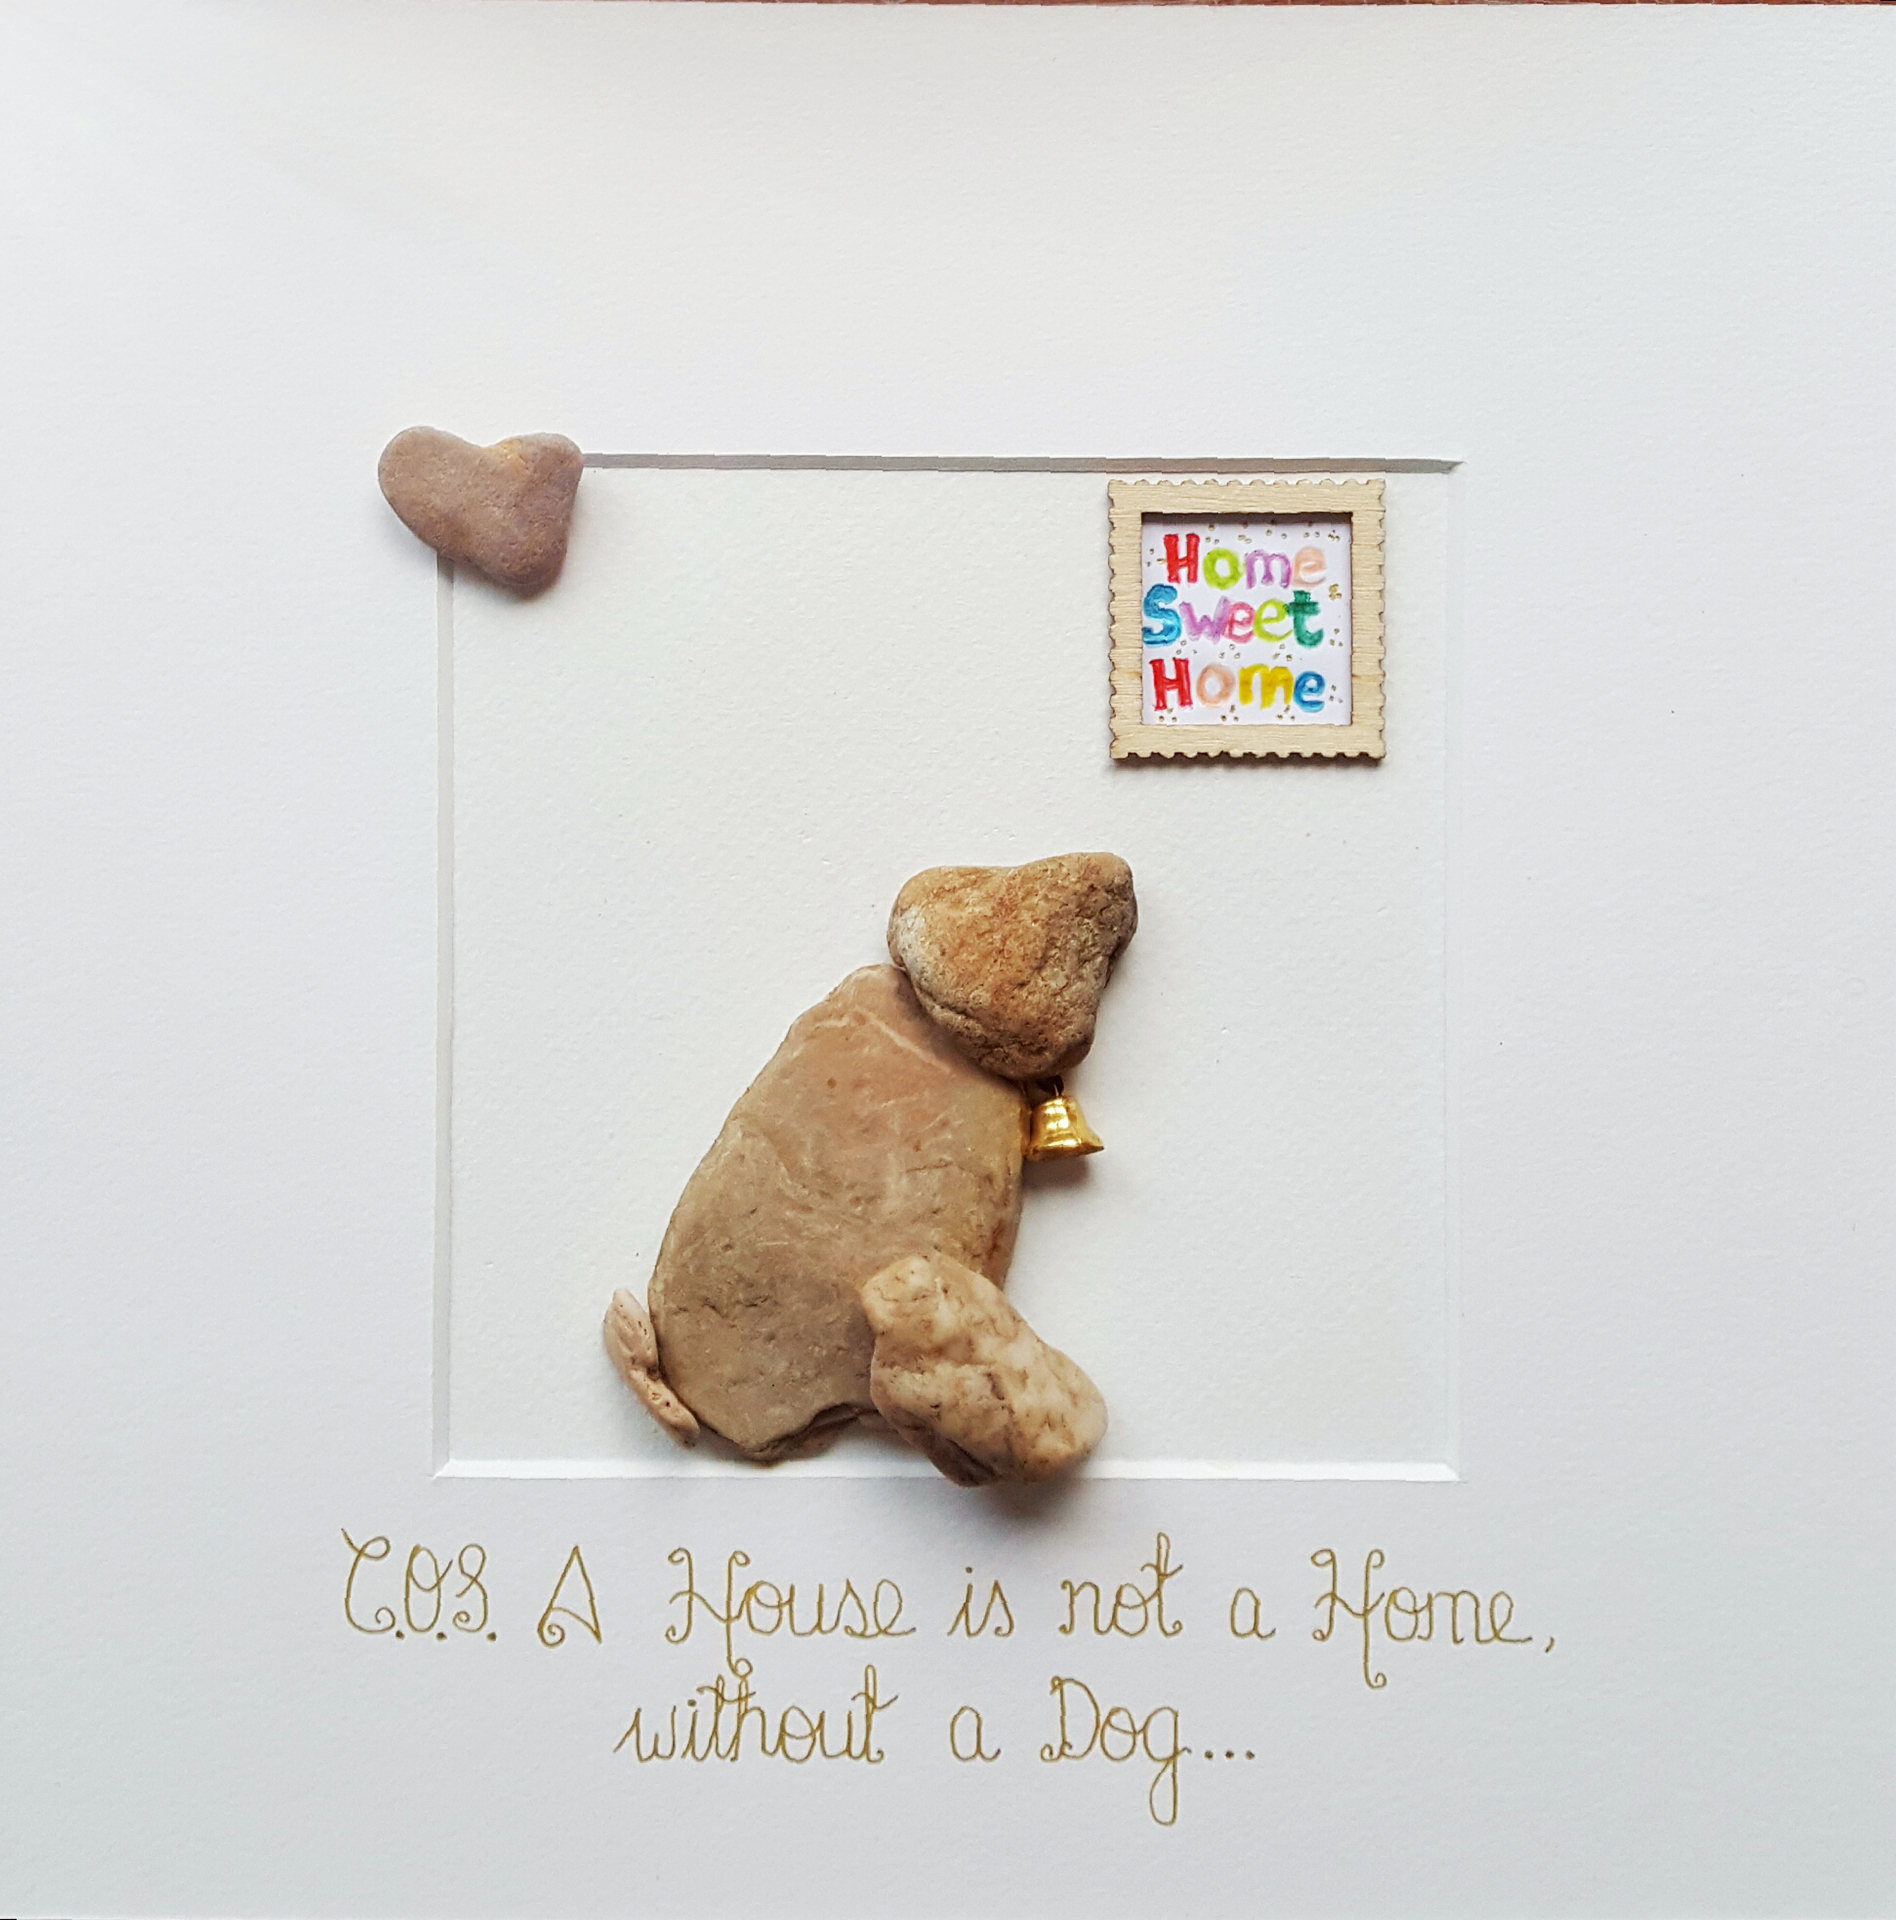 Home
Sweet
Home
C.O.S. A House is not a Home,
without a Dog...